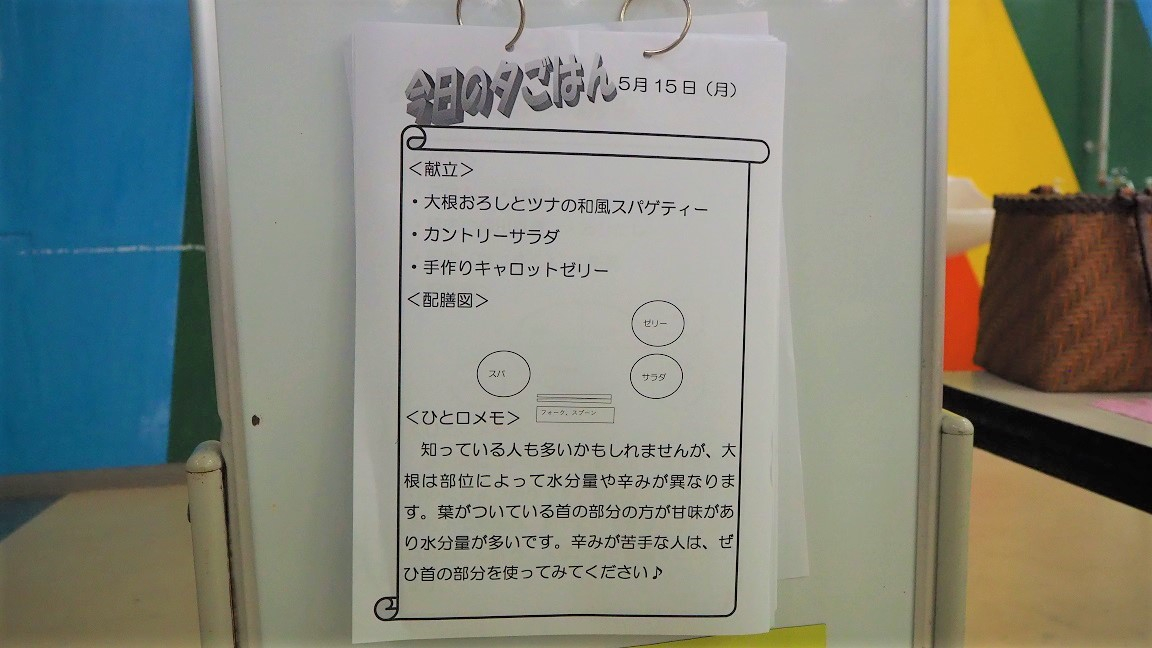 今日の夕ごはん 5月15日（月）
＜献立＞
・大根おろしとツナの和風スパゲティー
・カントリーサラダ
・手作りキャロットゼリー
＜配膳図＞
ゼリー
スパ
サラダ
フォーク、スプーン
＜ひと口メモ＞
知っている人も多いかもしれませんが、大
根は部位によって水分量や辛みが異なりま
す。葉がついている首の部分の方が甘味があ
り水分量が多いです。辛みが苦手な人は、ぜ
ひ首の部分を使ってみてください♪